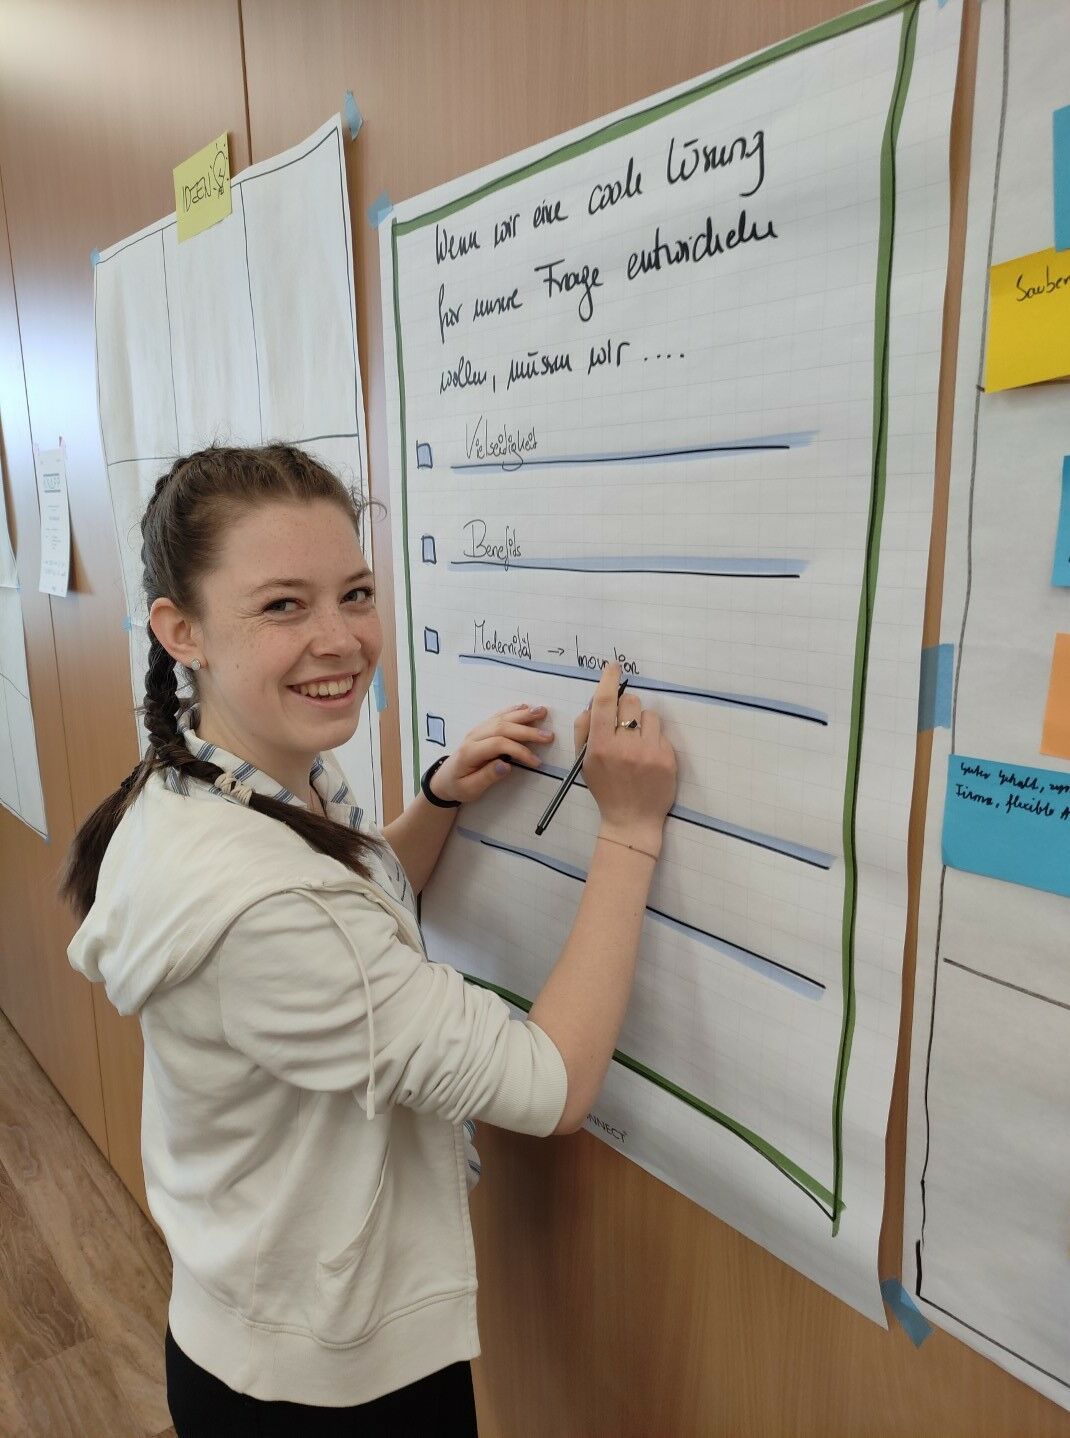 IDEEN
Wenn wir eine coole Lösung
für unsere Frage entwickeln
wollen, müssen wir ....
Vielseitigkeit
Benefits
Modernität → Inovation
Sauber
Guter Gehalt,
Firma, flexible A
ONNECT